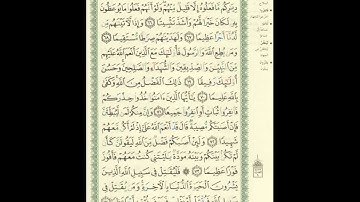 دِيَٰرِكُم مَّا فَعَلُوهُ إِلَّا قَلِيلٌ مِّنْهُمْ وَلَوْ أَنَّهُمْ فَعَلُوا۟ مَا يُوعَظُونَ
بِهِۦ لَكَانَ خَيْرًا لَّهُمْ وَأَشَدَّ تَثْبِيتًا ٦٦ وَإِذًا لَّءَاتَيْنَٰهُم مِّن
لَّدُنَّآ أَجْرًا عَظِيمًا ٦٧ وَلَهَدَيْنَٰهُمْ صِرَٰطًا مُّسْتَقِيمًا ٦٨
وَمَن يُطِعِ ٱللَّهَ وَٱلرَّسُولَ فَأُو۟لَٰٓئِكَ مَعَ ٱلَّذِينَ أَنْعَمَ ٱللَّهُ عَلَيْهِم
مِّنَ ٱلنَّبِيِّۦنَ وَٱلصِّدِّيقِينَ وَٱلشُّهَدَآءِ وَٱلصَّٰلِحِينَ وَحَسُنَ
أُو۟لَٰٓئِكَ رَفِيقًا ٦٩ ذَٰلِكَ ٱلْفَضْلُ مِنَ ٱللَّهِ وَكَفَىٰ
بِٱللَّهِ عَلِيمًا ٧٠ يَٰٓأَيُّهَا ٱلَّذِينَ ءَامَنُوا۟ خُذُوا۟ حِذْرَكُمْ
فَٱنفِرُوا۟ ثُبَاتٍ أَوِ ٱنفِرُوا۟ جَمِيعًا ٧١ وَإِنَّ مِنكُمْ لَمَن لَّيُبَطِّئَنَّ
فَإِنْ أَصَٰبَتْكُم مُّصِيبَةٌ قَالَ قَدْ أَنْعَمَ ٱللَّهُ عَلَىَّ إِذْ لَمْ أَكُن مَّعَهُمْ
شَهِيدًا ٧٢ وَلَئِنْ أَصَٰبَكُمْ فَضْلٌ مِّنَ ٱللَّهِ لَيَقُولَنَّ كَأَن
لَّمْ تَكُنۢ بَيْنَكُمْ وَبَيْنَهُۥ مَوَدَّةٌ يَٰلَيْتَنِى كُنتُ مَعَهُمْ فَأَفُوزَ
فَوْزًا عَظِيمًا ٧٣ ۞ فَلْيُقَٰتِلْ فِى سَبِيلِ ٱللَّهِ ٱلَّذِينَ
يَشْرُونَ ٱلْحَيَوٰةَ ٱلدُّنْيَا بِٱلْءَاخِرَةِ وَمَن يُقَٰتِلْ فِى